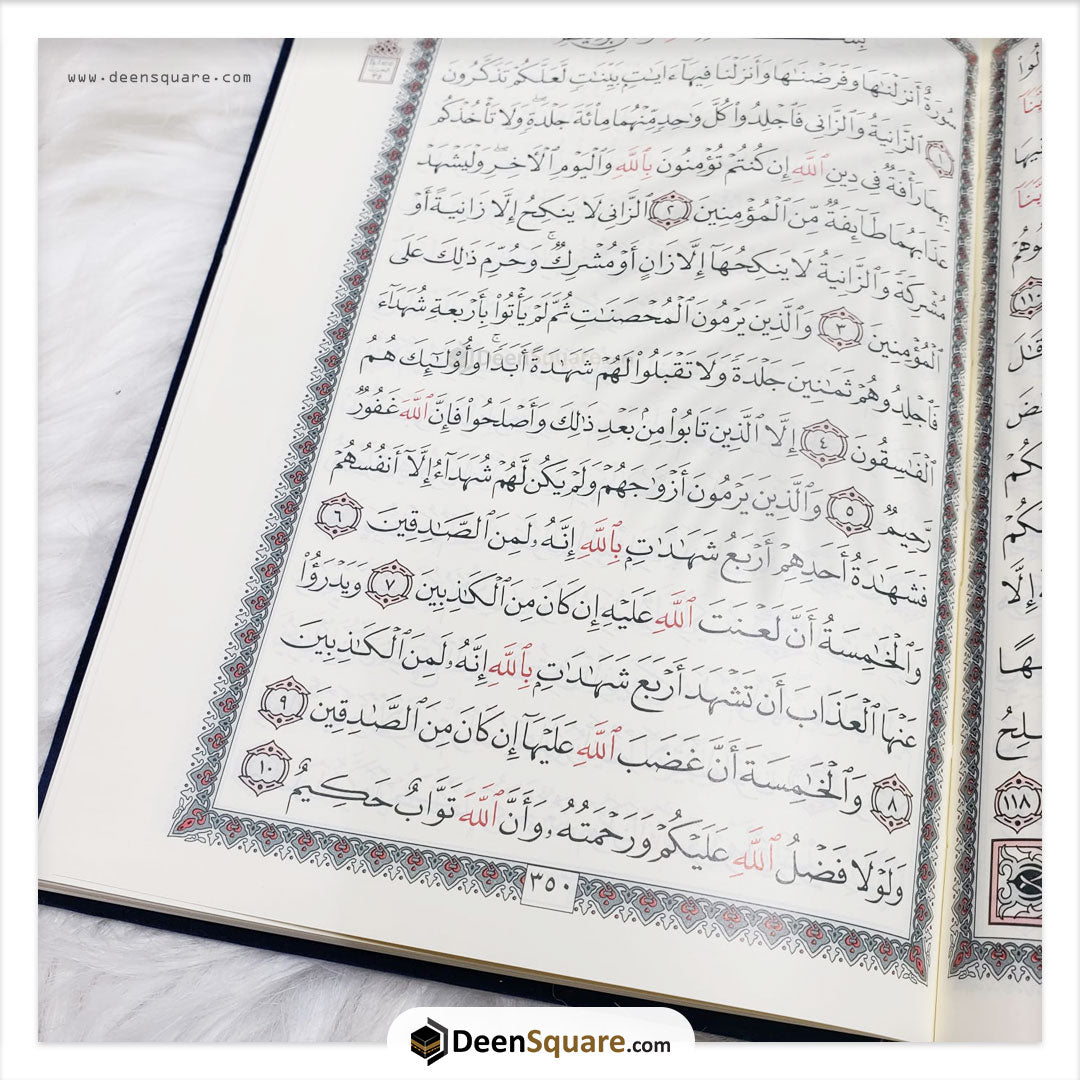 www.deensquare.com
سُورَةٌ أَنزَلْنَٰهَا وَفَرَضْنَٰهَا وَأَنزَلْنَا فِيهَآ ءَايَٰتٍۭ بَيِّنَٰتٍ لَّعَلَّكُمْ تَذَكَّرُونَ
١ ٱلزَّانِيَةُ وَٱلزَّانِى فَٱجْلِدُوا۟ كُلَّ وَٰحِدٍ مِّنْهُمَا مِا۟ئَةَ جَلْدَةٍ ۖ وَلَا تَأْخُذْكُم
بِهِمَا رَأْفَةٌ فِى دِينِ ٱللَّهِ إِن كُنتُمْ تُؤْمِنُونَ بِٱللَّهِ وَٱلْيَوْمِ ٱلْءَاخِرِ ۖ وَلْيَشْهَدْ
عَذَابَهُمَا طَآئِفَةٌ مِّنَ ٱلْمُؤْمِنِينَ ٢ ٱلزَّانِى لَا يَنكِحُ إِلَّا زَانِيَةً أَوْ
مُشْرِكَةً وَٱلزَّانِيَةُ لَا يَنكِحُهَآ إِلَّا زَانٍ أَوْ مُشْرِكٌ ۚ وَحُرِّمَ ذَٰلِكَ عَلَى
ٱلْمُؤْمِنِينَ ٣ وَٱلَّذِينَ يَرْمُونَ ٱلْمُحْصَنَٰتِ ثُمَّ لَمْ يَأْتُوا۟ بِأَرْبَعَةِ شُهَدَآءَ
فَٱجْلِدُوهُمْ ثَمَٰنِينَ جَلْدَةً وَلَا تَقْبَلُوا۟ لَهُمْ شَهَٰدَةً أَبَدًا ۚ وَأُو۟لَٰٓئِكَ هُمُ
ٱلْفَٰسِقُونَ ٤ إِلَّا ٱلَّذِينَ تَابُوا۟ مِنۢ بَعْدِ ذَٰلِكَ وَأَصْلَحُوا۟ فَإِنَّ ٱللَّهَ غَفُورٌ
رَّحِيمٌ ٥ وَٱلَّذِينَ يَرْمُونَ أَزْوَٰجَهُمْ وَلَمْ يَكُن لَّهُمْ شُهَدَآءُ إِلَّآ أَنفُسُهُمْ
فَشَهَٰدَةُ أَحَدِهِمْ أَرْبَعُ شَهَٰدَٰتٍۭ بِٱللَّهِ إِنَّهُۥ لَمِنَ ٱلصَّٰدِقِينَ ٦
وَٱلْخَٰمِسَةُ أَنَّ لَعْنَتَ ٱللَّهِ عَلَيْهِ إِن كَانَ مِنَ ٱلْكَٰذِبِينَ ٧ وَيَدْرَؤُا۟
عَنْهَا ٱلْعَذَابَ أَن تَشْهَدَ أَرْبَعَ شَهَٰدَٰتٍۭ بِٱللَّهِ إِنَّهُۥ لَمِنَ ٱلْكَٰذِبِينَ
٨ وَٱلْخَٰمِسَةَ أَنَّ غَضَبَ ٱللَّهِ عَلَيْهَآ إِن كَانَ مِنَ ٱلصَّٰدِقِينَ ٩
وَلَوْلَا فَضْلُ ٱللَّهِ عَلَيْكُمْ وَرَحْمَتُهُۥ وَأَنَّ ٱللَّهَ تَوَّابٌ حَكِيمٌ ١٠
٣٥٠
١١٠
١١٨
DeenSquare.com